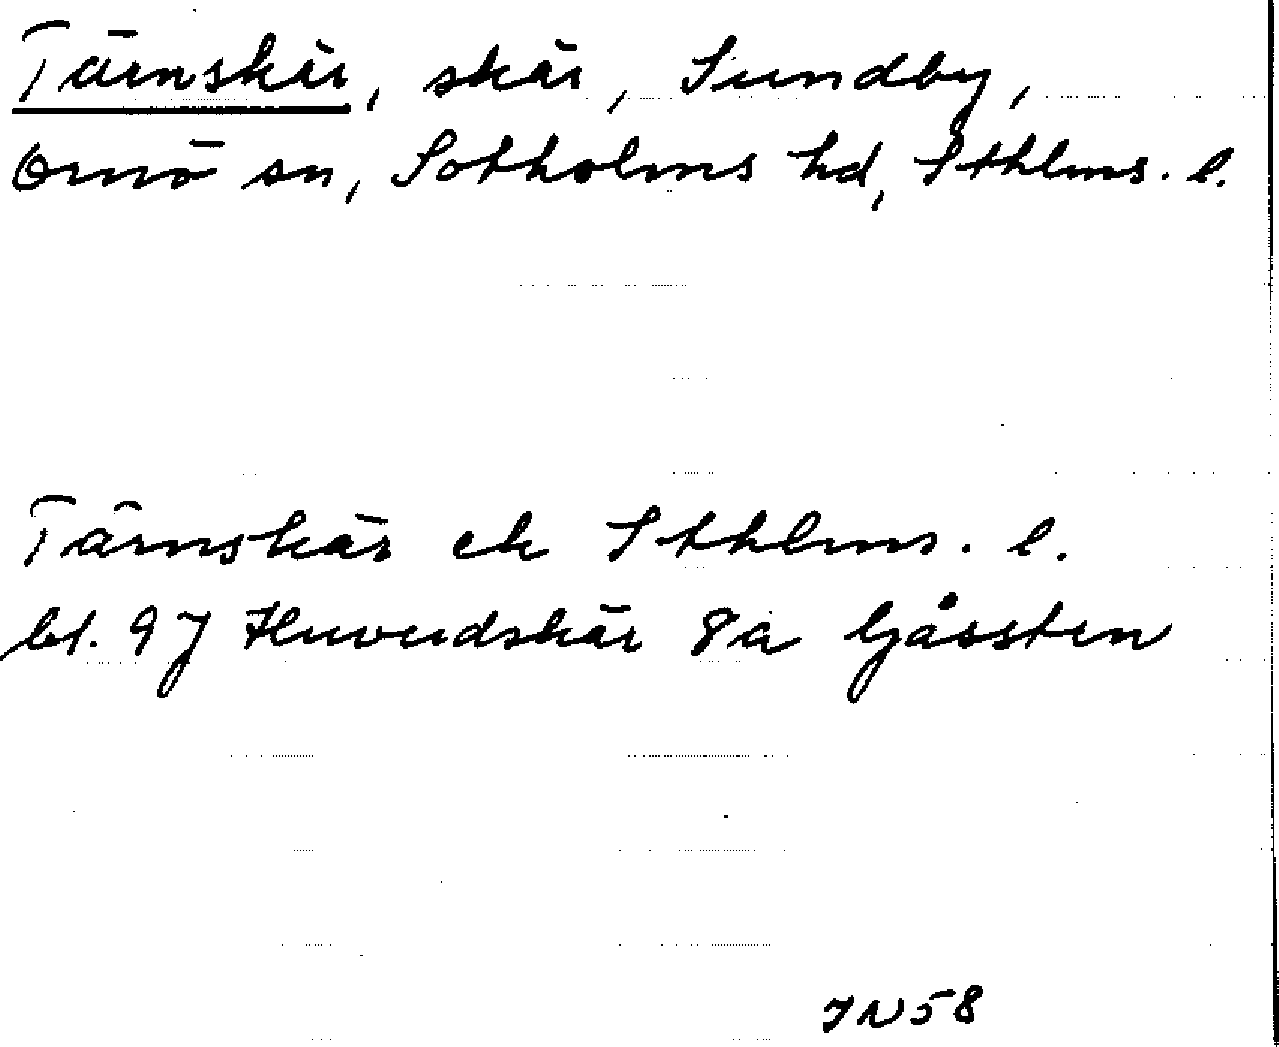 Tärnskär, skär, Sundby,
Ornö sn, Sotholms hd, Sthlms. l.
Tärnskär ek Sthlms. l.
bl. 97 Huvudskär 8a Gåssten
JN58